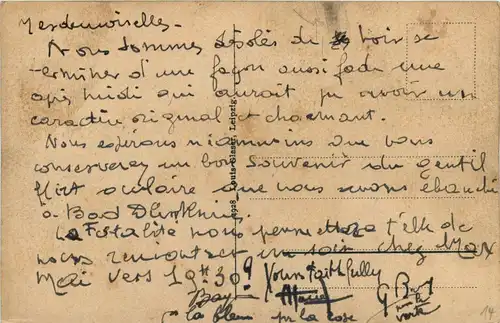 Mesdemoiselles -
Nous sommes désolés de voir se
terminer d'une façon aussi fade une
après midi qui aurait pu avoir un
caractère original et charmant.
Nous espérons néanmoins que vous
conserverez un bon souvenir du gentil
flirt oculaire que nous avons ébauché
à Bad
La Fatalité nous permettra t'elle de
nous rencontrer un soir chez Max
Mai vers 19h 30?
Yours faithfully
la rose
Louis Glaser, Leipzig
14